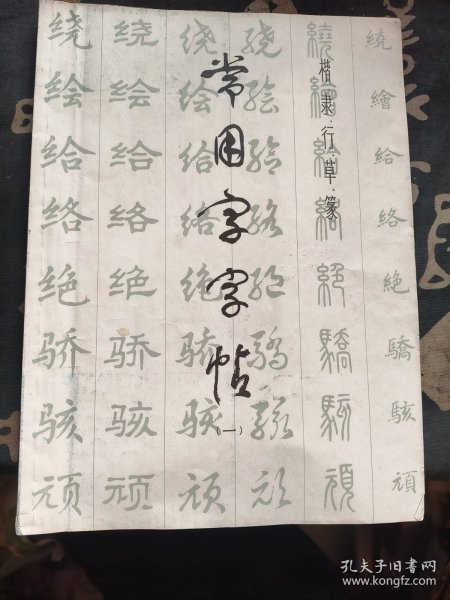 常用字字帖
（一）
楷、隶、行、草、篆
绕 绕 绕 绕 繞 繞
绘 绘 绘 绘 繪 繪
给 给 给 给 給 給
络 络 络 络 絡 絡
绝 绝 绝 绝 絕 絶
骄 骄 骄 骄 驕 驕
骇 骇 骇 骇 駭 駭
顽 顽 顽 顽 頑 頑
孔夫子旧书网
www.kongfz.com